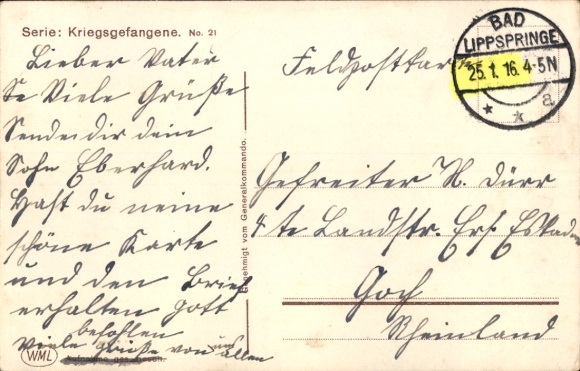 Serie: Kriegsgefangene. No. 21
Lieber Vater
Viele Grüße
Sendet dir dein
Sohn Eberhard.
Hast du meine
schöne Karte
und den Brief
erhalten Gott
befohlen
Viele Grüße von uns allen
WML
Genehmigt vom Generalkommando.
Feldpostkarte
BAD
LIPPSPRINGE
25.1.16. 4-5N
* * a
Gefreiter H. Dürr
4te Landstr. Ers. Eskadron
Goch
Rheinland